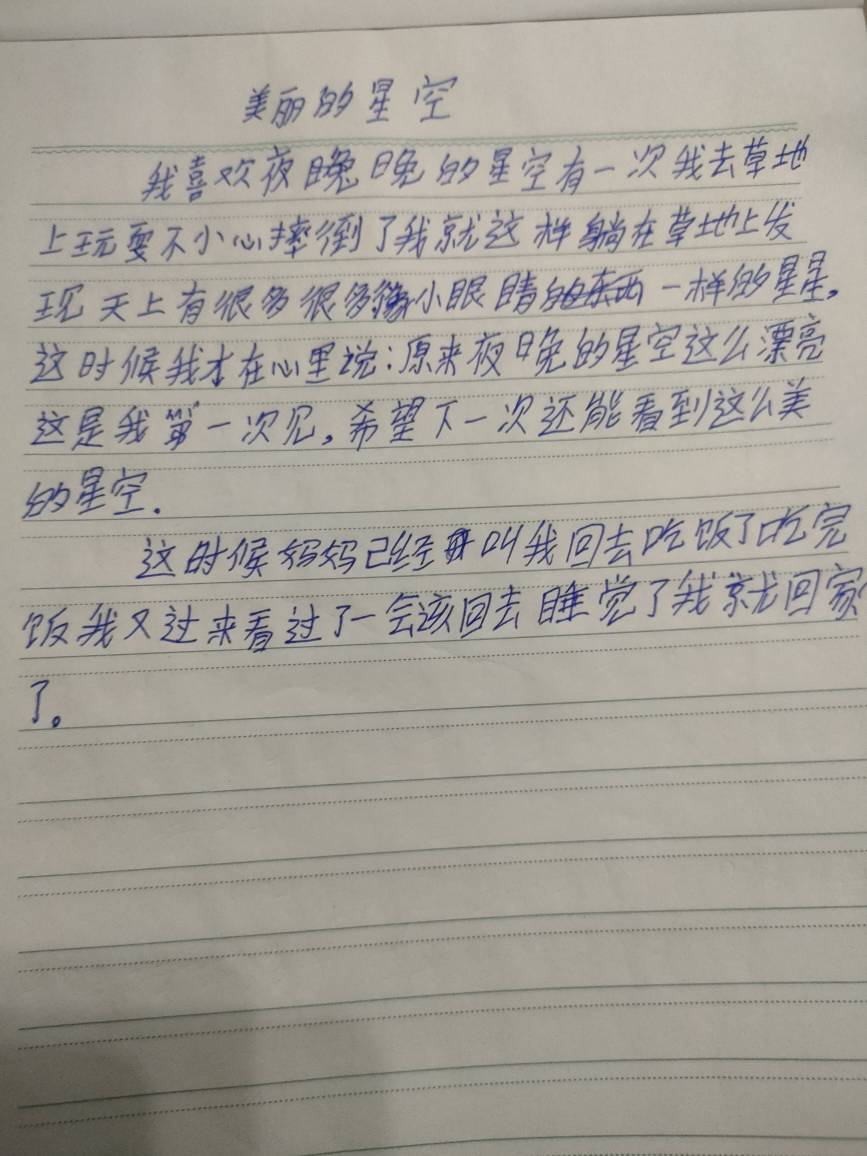 美丽的星空
我喜欢夜晚晚的星空有一次我去草地
上玩耍不小心摔倒了我就这样躺在草地上发
现天上有很多很多像小眼睛的东西一样的星星,
这时候我才在心里说:原来夜晚的星空这么漂亮
这是我第一次见,希望下一次还能看到这么美
的星空.
这时候妈妈已经叫我回去吃饭了吃完
饭我又过来看过了一会该回去睡觉了我就回家
了。